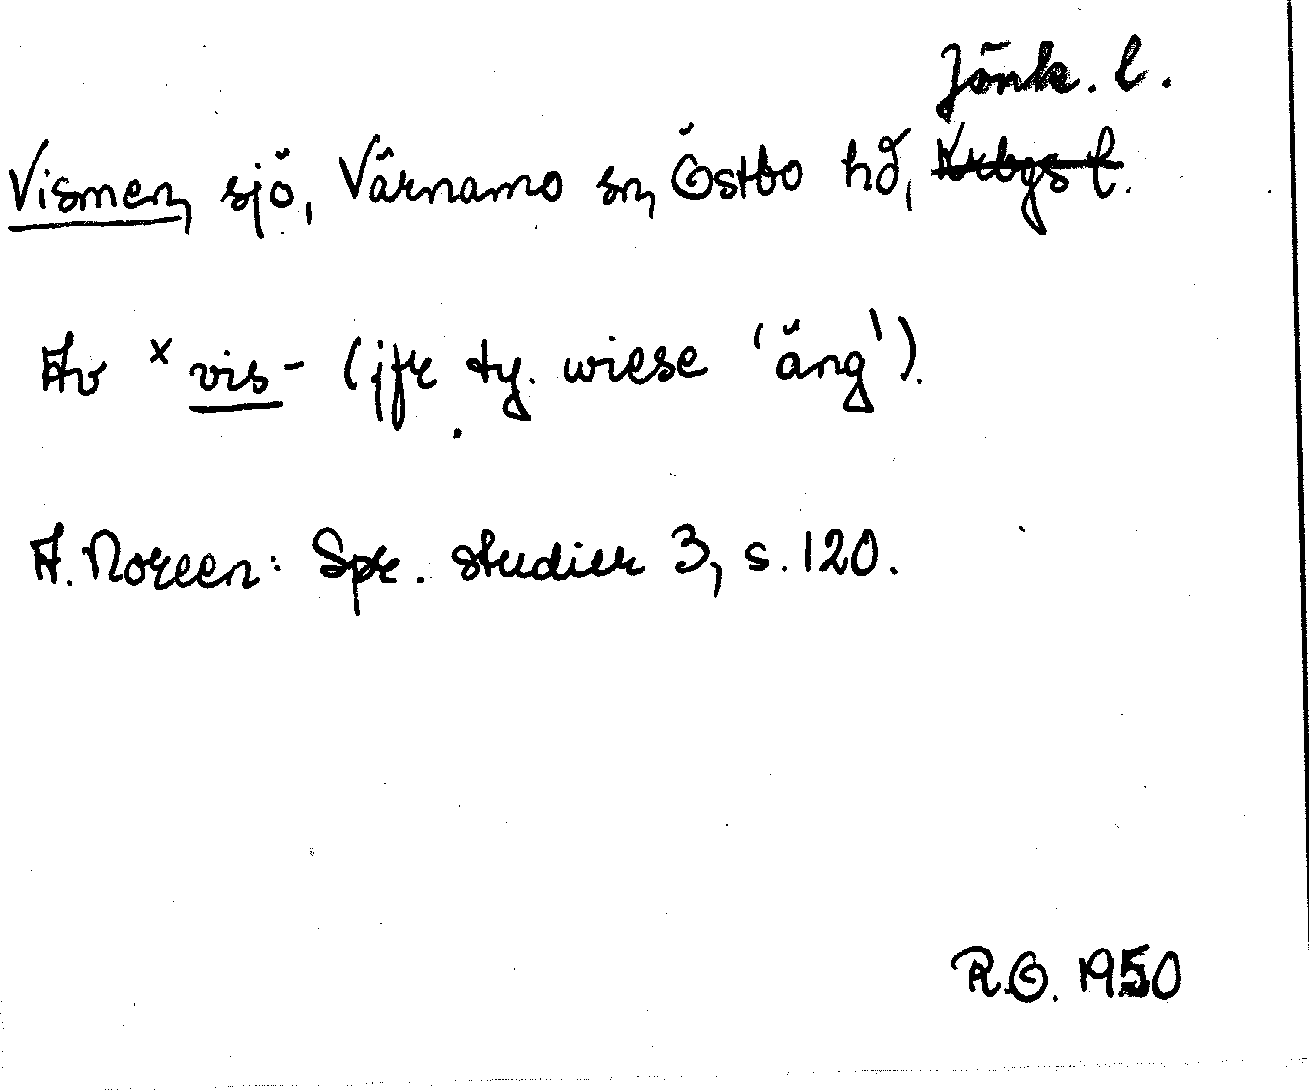 Jönk. l.
Vismen, sjö, Värnamo sn, Östbo hd, Krbgs l.
Av × vis- (jfr ty. wiese 'äng').
A. Noreen: Spr. studier 3, s. 120.
R.O. 1950